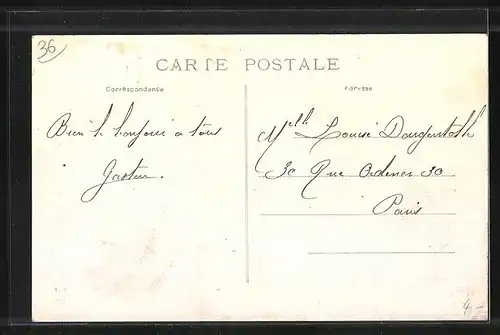 36
CARTE POSTALE
Correspondance
Adresse
Bien le bonjour a tous
Gaston.
Mlle Louise
30 Rue Ordener 30
Paris
4.-